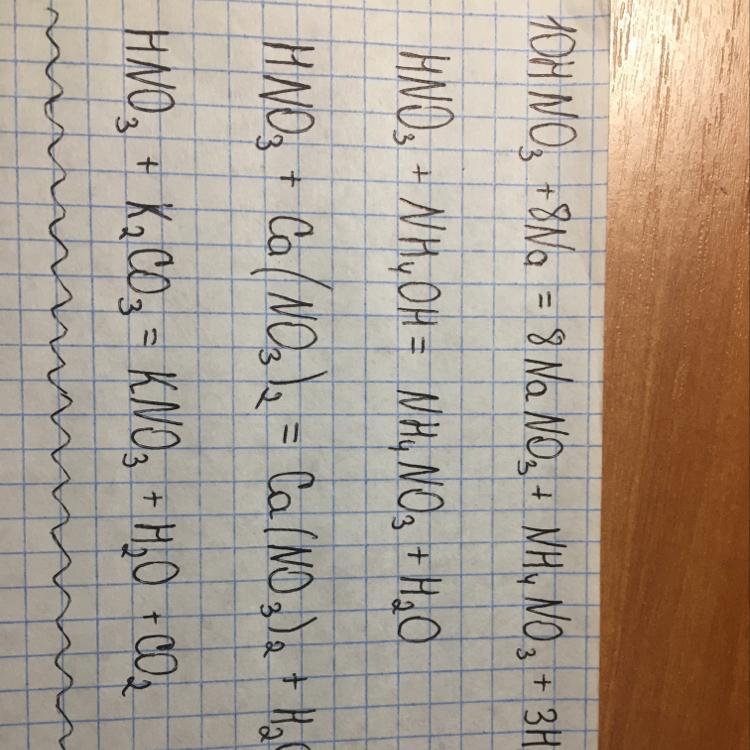 10HNO₃ + 8Na = 8NaNO₃ + NH₄NO₃ + 3H
HNO₃ + NH₄OH = NH₄NO₃ + H₂O
HNO₃ + Ca(NO₃)₂ = Ca(NO₃)₂ + H₂O
HNO₃ + K₂CO₃ = KNO₃ + H₂O + CO₂